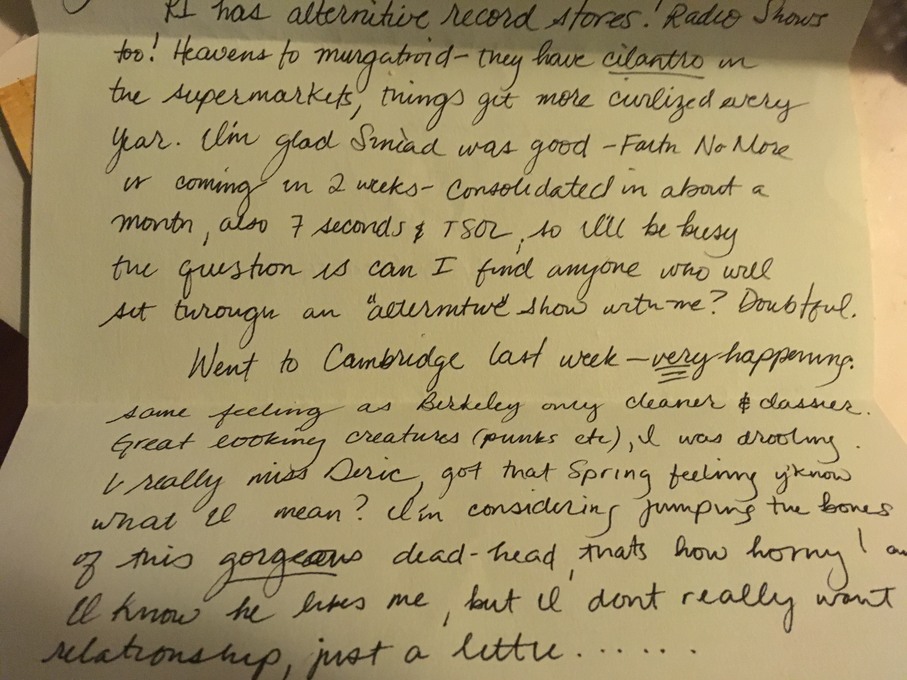 RI has alternitive record stores! Radio Shows
too! Heavens to murgatroid - they have cilantro in
the supermarkets, things git more civilized every
year. I'm glad Sinead was good - Faith No More
is coming in 2 weeks - Consolidated in about a
month, also 7 seconds & TSOL, so I'll be busy
the question is can I find anyone who will
sit through an "alternitive" show with me? Doubtful.
Went to Cambridge last week - very happening.
same feeling as Berkeley only cleaner & classier.
Great looking creatures (punks etc), I was drooling.
I really miss Deric, got that Spring feeling y'know
what I mean? I'm considering jumping the bones
of this gorgeous dead-head, thats how horny!
I know he likes me, but I dont really want
relationship, just a little......